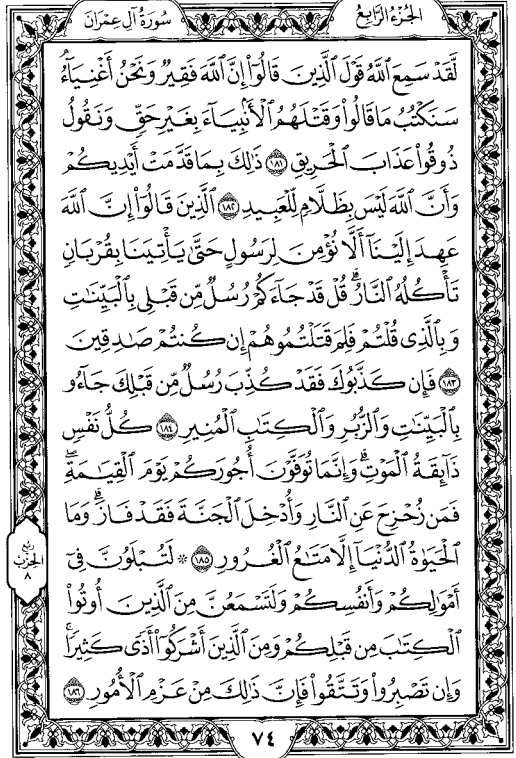 سُورَةُ آلِ عِمْرَانَ
الجُزْءُ الرَّابِعُ
لَّقَدْ سَمِعَ ٱللَّهُ قَوْلَ ٱلَّذِينَ قَالُوٓا۟ إِنَّ ٱللَّهَ فَقِيرٌ وَنَحْنُ أَغْنِيَآءُ ۘ
سَنَكْتُبُ مَا قَالُوا۟ وَقَتْلَهُمُ ٱلْأَنۢبِيَآءَ بِغَيْرِ حَقٍّ وَنَقُولُ
ذُوقُوا۟ عَذَابَ ٱلْحَرِيقِ ١٨١ ذَٰلِكَ بِمَا قَدَّمَتْ أَيْدِيكُمْ
وَأَنَّ ٱللَّهَ لَيْسَ بِظَلَّامٍ لِّلْعَبِيدِ ١٨٢ ٱلَّذِينَ قَالُوٓا۟ إِنَّ ٱللَّهَ
عَهِدَ إِلَيْنَآ أَلَّا نُؤْمِنَ لِرَسُولٍ حَتَّىٰ يَأْتِيَنَا بِقُرْبَانٍ
تَأْكُلُهُ ٱلنَّارُ ۗ قُلْ قَدْ جَآءَكُمْ رُسُلٌ مِّن قَبْلِى بِٱلْبَيِّنَٰتِ
وَبِٱلَّذِى قُلْتُمْ فَلِمَ قَتَلْتُمُوهُمْ إِن كُنتُمْ صَٰدِقِينَ
١٨٣ فَإِن كَذَّبُوكَ فَقَدْ كُذِّبَ رُسُلٌ مِّن قَبْلِكَ جَآءُو
بِٱلْبَيِّنَٰتِ وَٱلزُّبُرِ وَٱلْكِتَٰبِ ٱلْمُنِيرِ ١٨٤ كُلُّ نَفْسٍ
ذَآئِقَةُ ٱلْمَوْتِ ۗ وَإِنَّمَا تُوَفَّوْنَ أُجُورَكُمْ يَوْمَ ٱلْقِيَٰمَةِ ۖ
فَمَن زُحْزِحَ عَنِ ٱلنَّارِ وَأُدْخِلَ ٱلْجَنَّةَ فَقَدْ فَازَ ۗ وَمَا
ٱلْحَيَوٰةُ ٱلدُّنْيَآ إِلَّا مَتَٰعُ ٱلْغُرُورِ ١٨٥ ۞ لَتُبْلَوُنَّ فِىٓ
أَمْوَٰلِكُمْ وَأَنفُسِكُمْ وَلَتَسْمَعُنَّ مِنَ ٱلَّذِينَ أُوتُوا۟
ٱلْكِتَٰبَ مِن قَبْلِكُمْ وَمِنَ ٱلَّذِينَ أَشْرَكُوٓا۟ أَذًى كَثِيرًا ۚ
وَإِن تَصْبِرُوا۟ وَتَتَّقُوا۟ فَإِنَّ ذَٰلِكَ مِنْ عَزْمِ ٱلْأُمُورِ ١٨٦
ربع
الحزب
٨
٧٤